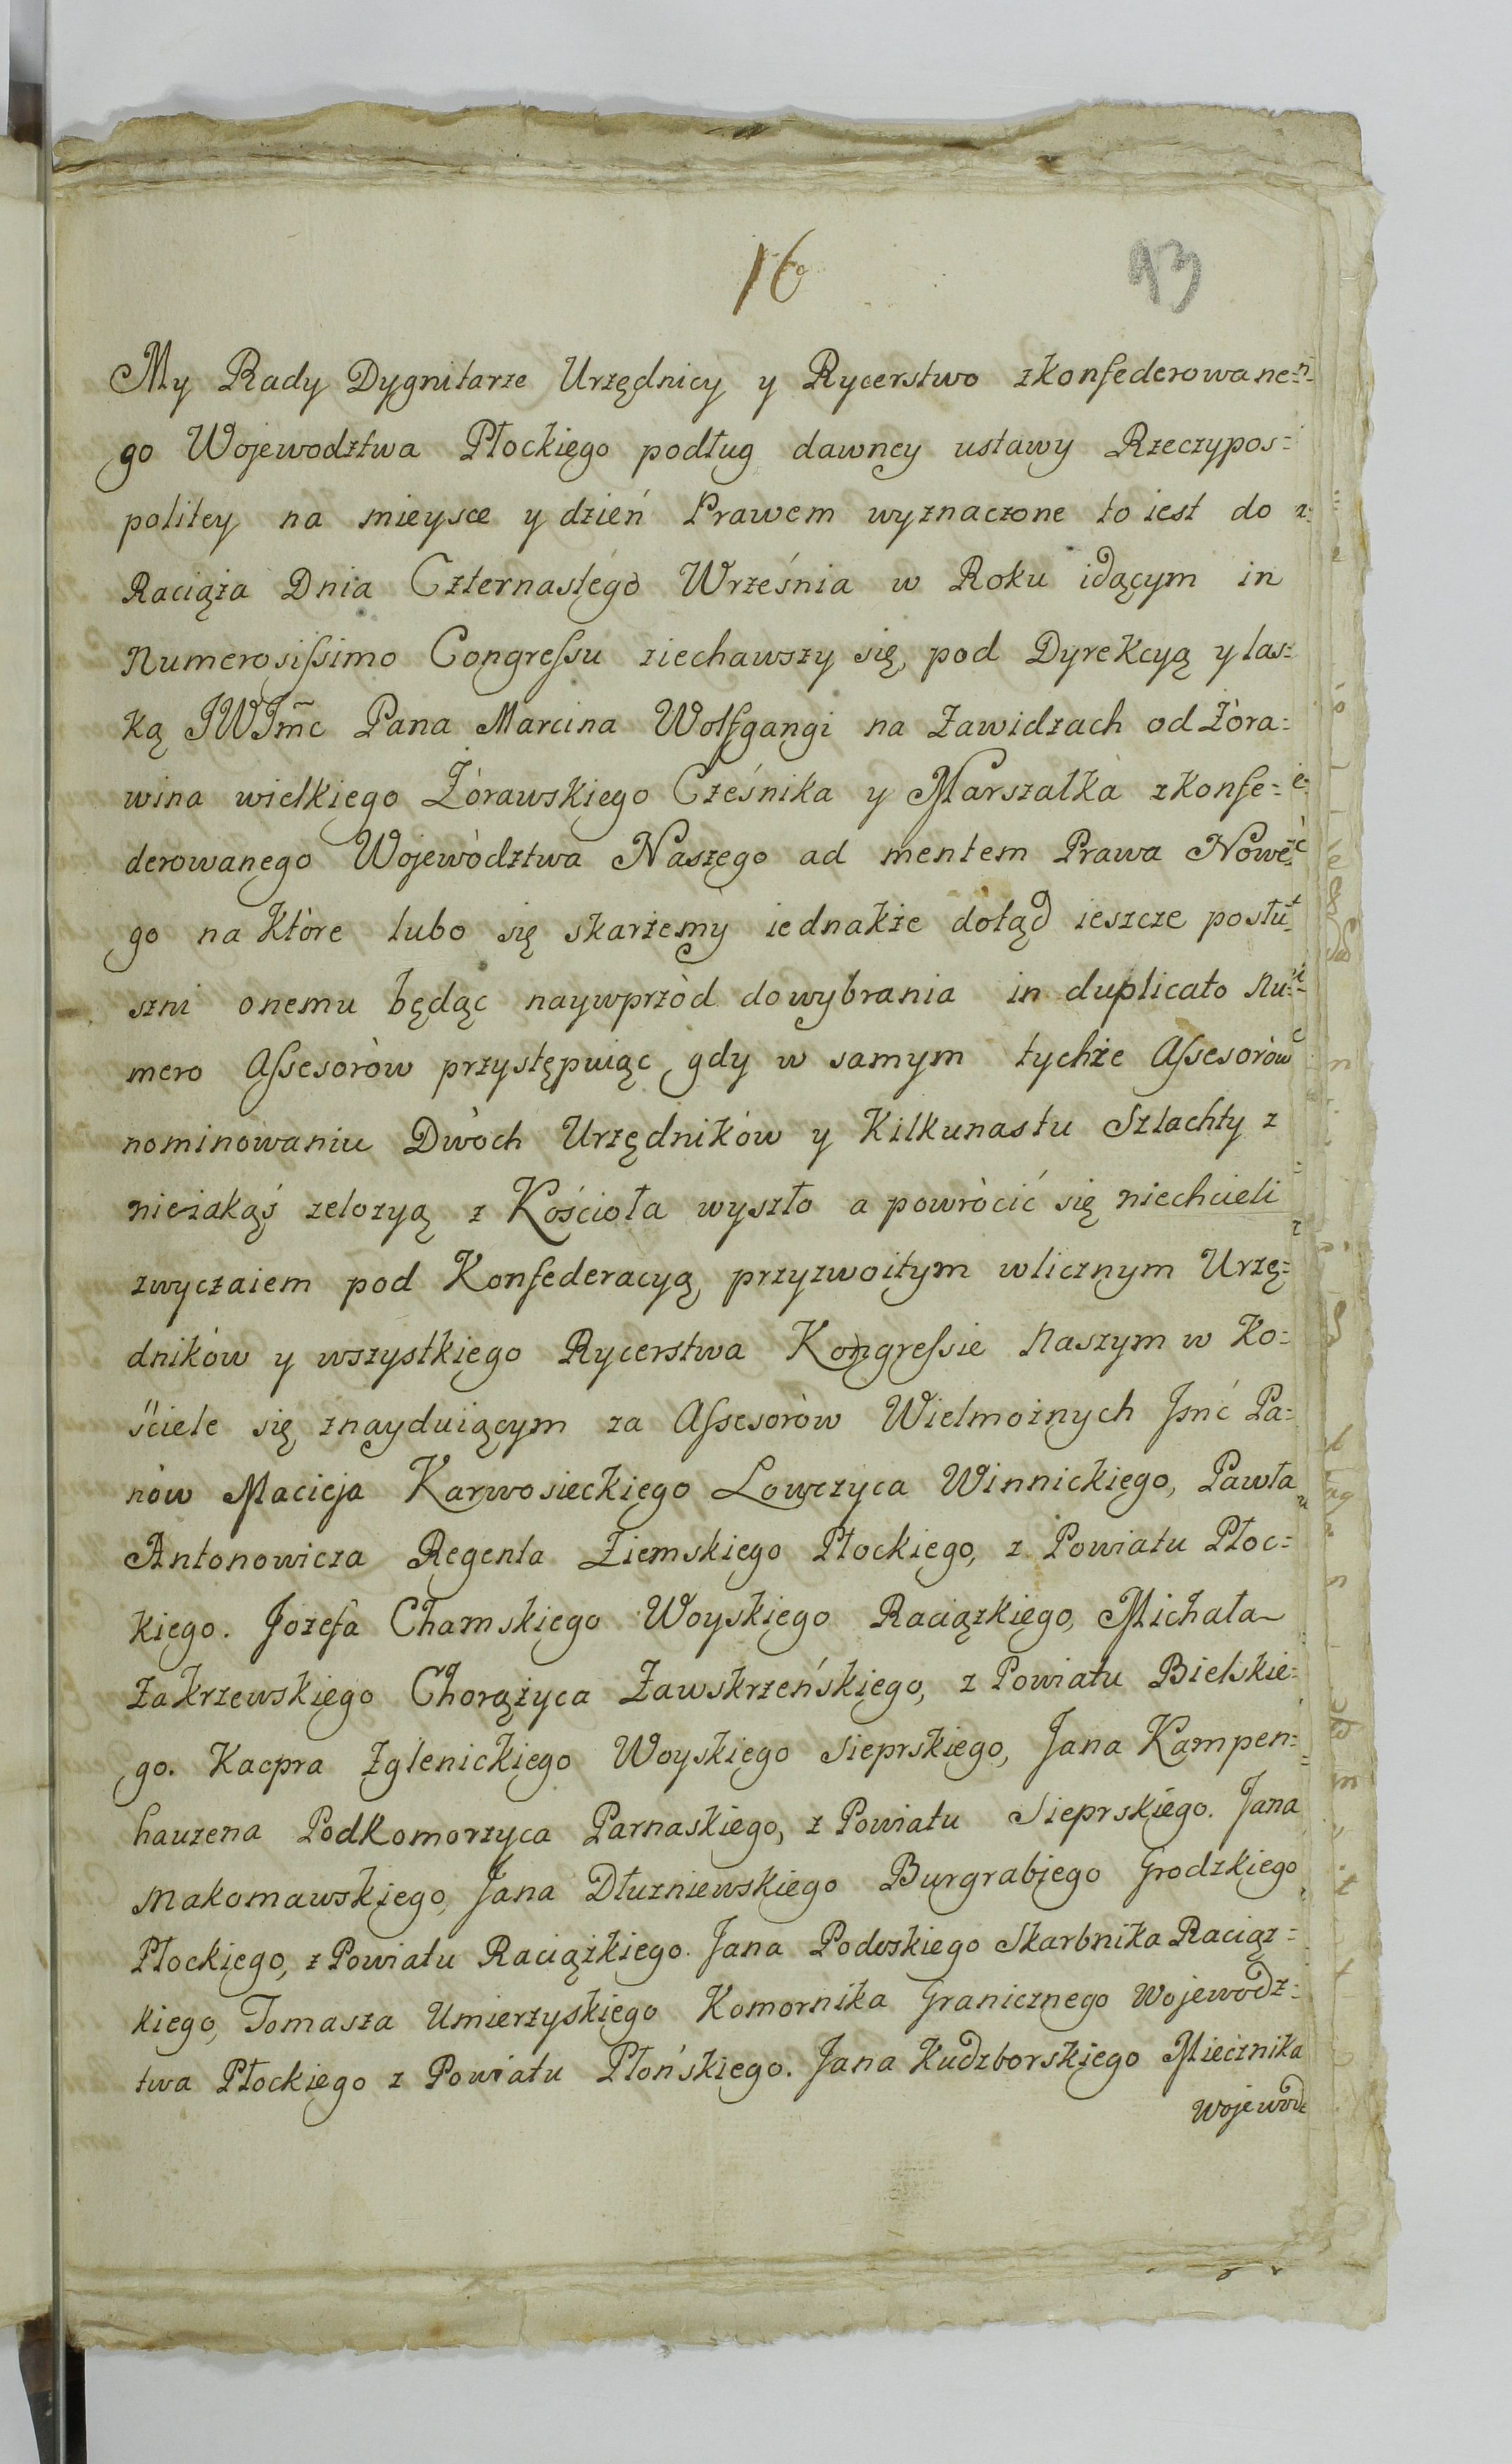 16
93
My Rady Dygnitarze Urzędnicy y Rycerstwo zkonfederowane=
go Wojewodztwa Płockiego podług dawney ustawy Rzeczypos=
politey na mieysce y dzień Prawem wyznaczone to iest do
Raciąża Dnia Czternastego Września w Roku idącym in
Numerosissimo Congressu ziechawszy się, pod Dyrekcyą y las=
ką JWJmc Pana Marcina Wolfgangi na Zawidzach od Żóra=
wina wielkiego Żórawskiego Cześnika y Marszałka zkonfe=
derowanego Województwa Naszego ad mentem Prawa Nowe=
go na które lubo się skarżemy iednakże dotąd ieszcze posłu=
szni onemu będąc naywprzód do wybrania in duplicato Nu=
mero Assesorów przystępuiąc, gdy w samym tychże Assesorów
nominowaniu Dwóch Urzędników y Kilkunastu Szlachty z
nieiakąś zelozyą z Kościoła wyszło a powrócić się niechcieli
zwyczaiem pod Konfederacyą przyzwoitym wlicznym Urzę=
dników y wszystkiego Rycerstwa Kongressie Naszym w Ko=
ściele się znayduiącym za Assesorów Wielmożnych Jmć Pa=
nów Macieja Karwosieckiego Łowczyca Winnickiego, Pawła
Antonowicza Regenta Ziemskiego Płockiego, z Powiatu Płoc=
kiego. Jozefa Chamskiego Woyskiego Raciązkiego, Michała
Zakrzewskiego Chorążyca Zawskrzeńskiego, z Powiatu Bielskie=
go. Kacpra Zglenickiego Woyskiego Sieprskiego, Jana Kampen=
hauzena Podkomorzyca Parnaskiego, z Powiatu Sieprskiego. Jana
Makomawskiego, Jana Dłużniewskiego Burgrabiego Grodzkiego
Płockiego, z Powiatu Raciążkiego. Jana Podoskiego Skarbnika Raciąz=
kiego, Tomasza Umierzyskiego Komornika Granicznego Wojewodz=
twa Płockiego z Powiatu Płońskiego. Jana Kudzborskiego Miecznika
Wojewodz